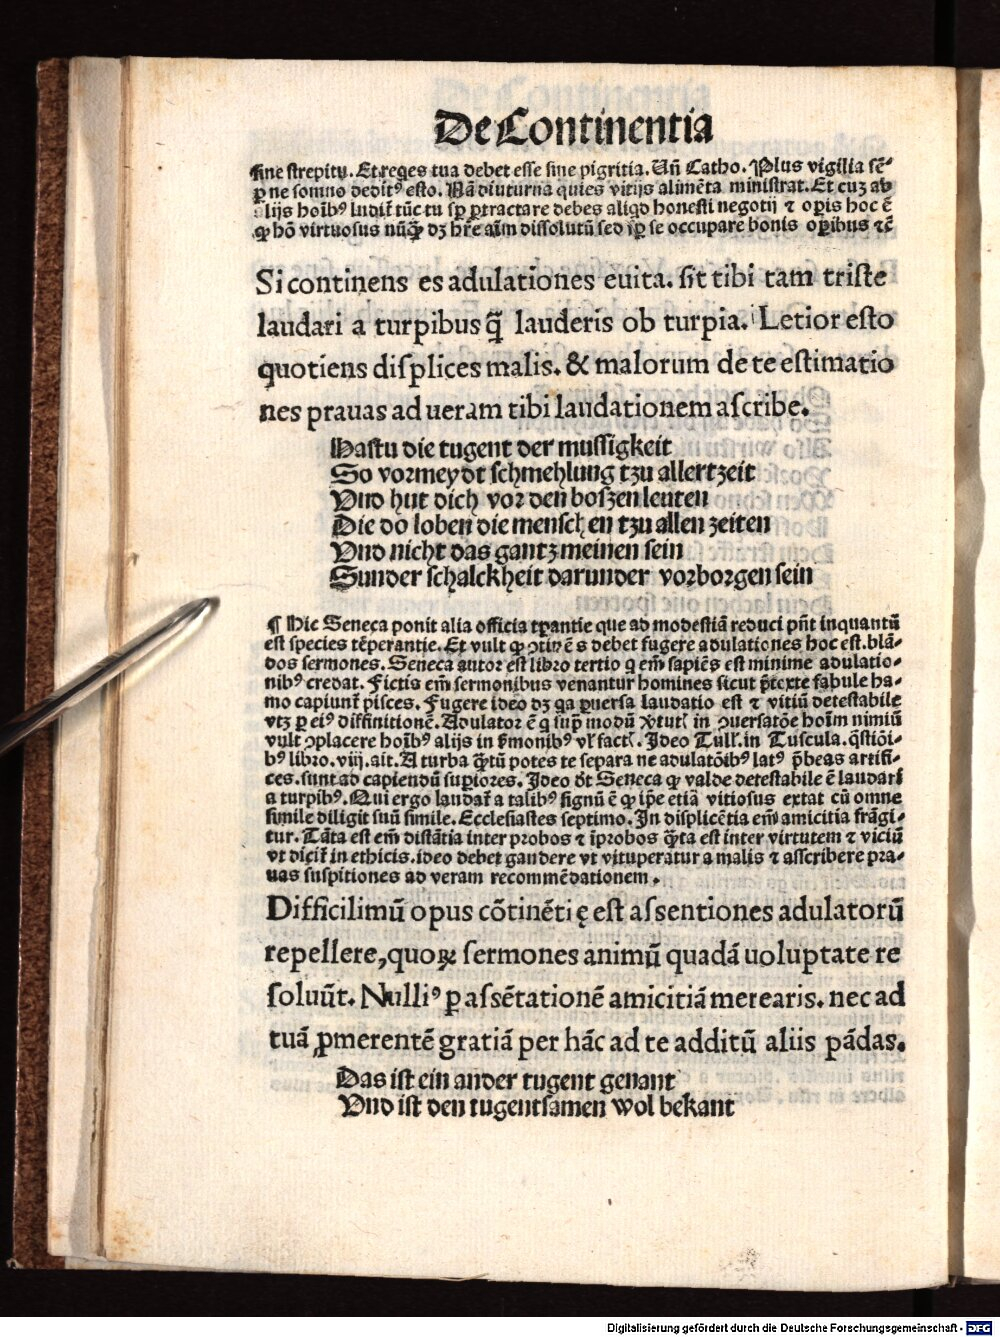 De Continentia
sine strepitu. Et reges tua debet esse sine pigritia. Uñ Catho. Plus vigilia sē-
ꝑ ne somno deditꝰ esto. Nā diuturna quies vitijs alimēta ministrat. Et cuꝫ ab
alijs hoībꝰ ludit̃ tūc tu sꝑ ꝑtractare debes aliqd honesti negotij ⁊ oꝑis hoc ē
ꝙ hō virtuosus nūq̄ꝫ dꝫ hr̄e aīm dissolutū sed sꝑ se occupare bonis oꝑibus ⁊c̄
Si continens es adulationes euita. sit tibi tam triste
laudari a turpibus q̄ lauderis ob turpia. Letior esto
quotiens displices malis. & malorum de te estimatio
nes prauas ad ueram tibi laudationem ascribe.
Hastu die tugent der mussigkeit
So vormeydt schmehlung tzu allertzeit
Vnd hut dich vor den boszen leuten
Die do loben die menschen tzu allen zeiten
Vnd nicht das gantz meinen sein
Sunder schalckheit darunder vorborgen sein
¶ Hic Seneca ponit alia officia tꝑantie que ad modestiā reduci pn̄t inquantū
est species tēperantie. Et vult ꝙ ꝯtinēs debet fugere adulationes hoc est. blā-
dos sermones. Seneca autor est libro tertio q em̄ sapiēs est minime adulatio-
nibꝰ credat. Fictis em̄ sermonibus venantur homines sicut p̄texte fabule ha-
mo capiunt̃ pisces. Fugere ideo dꝫ qa ꝑuersa laudatio est ⁊ vitiū detestabile
vtꝫ ꝑ eiꝰ diffinitionē. Adulator ē q sup̄ modū in ꝯuersatōe hoīm nimiū
vult ꝯplacere hoībꝰ alijs in s̄monibꝰ vl̓ Ideo Tull̓. in Tuscula. q̄stiōi-
bꝰ libro. viij. ait. A turba q̄tū potes te separa ne adulatōibꝰ latꝰ p̄beas artifi-
ces. sunt ad capiendū suꝑiores. Ideo dt̄ Seneca ꝙ valde detestabile ē laudari
a turpibꝰ. Qui ergo laudat̃ a talibꝰ signū ē ꝙ ip̄e etiā vitiosus extat cū omne
simile diligit suū simile. Ecclesiastes septimo. In displicētia em̄ amicitia frāgi-
tur. Tāta est em̄ distātia inter probos ⁊ īprobos q̄ta est inter virtutem ⁊ viciū
vt dicit̃ in ethicis. ideo debet gaudere vt vituperatur a malis ⁊ asscribere pra-
uas suspitiones ad veram recommēdationem.
Difficilimū opus cōtinētię est assentiones adulatorū
repellere, quoꝝ sermones animū quadā uoluptate re
soluūt. Nulliꝰ ꝑ assētationē amicitiā merearis. nec ad
tuā ꝓmerentē gratiā per hāc ad te additū aliis pādas.
Das ist ein ander tugent genant
Vnd ist den tugentsamen wol bekant
Digitalisierung gefördert durch die Deutsche Forschungsgemeinschaft - DFG